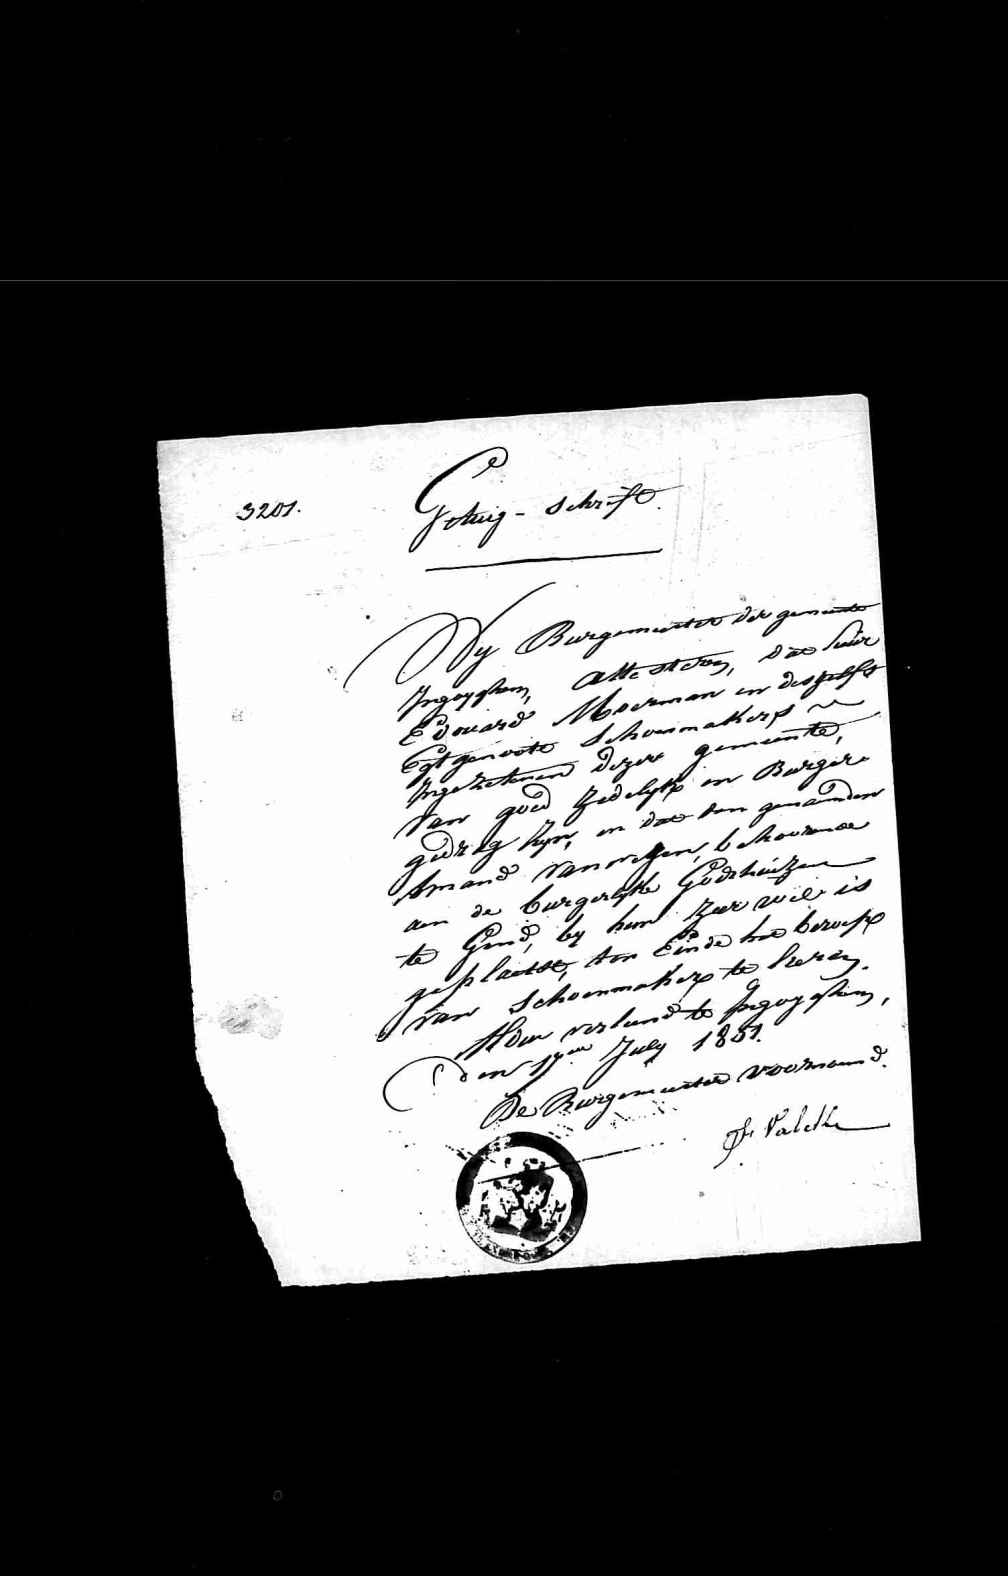 3201.
Getuig-schrift.
Wy Burgemeester der gemeente
Ingoyghem, attesteren, dat Sieur
Edouard Moerman en deszelfs
Egtgenoote Schoenmakers
Ingezetenen dezer gemeente,
van goed zedelyk en Burger-
gedrag zyn, en dat den genaemden
Amand Vanwegen, behoorende
aen de burgerlyke Godshuizen
te Gend, by hun zeer wel is
geplaetst, ten Einde het beroep
van Schoenmaker te leeren.
Aldus verleend te Ingoyghem,
den July 1851.
De Burgemeester voornoemd.